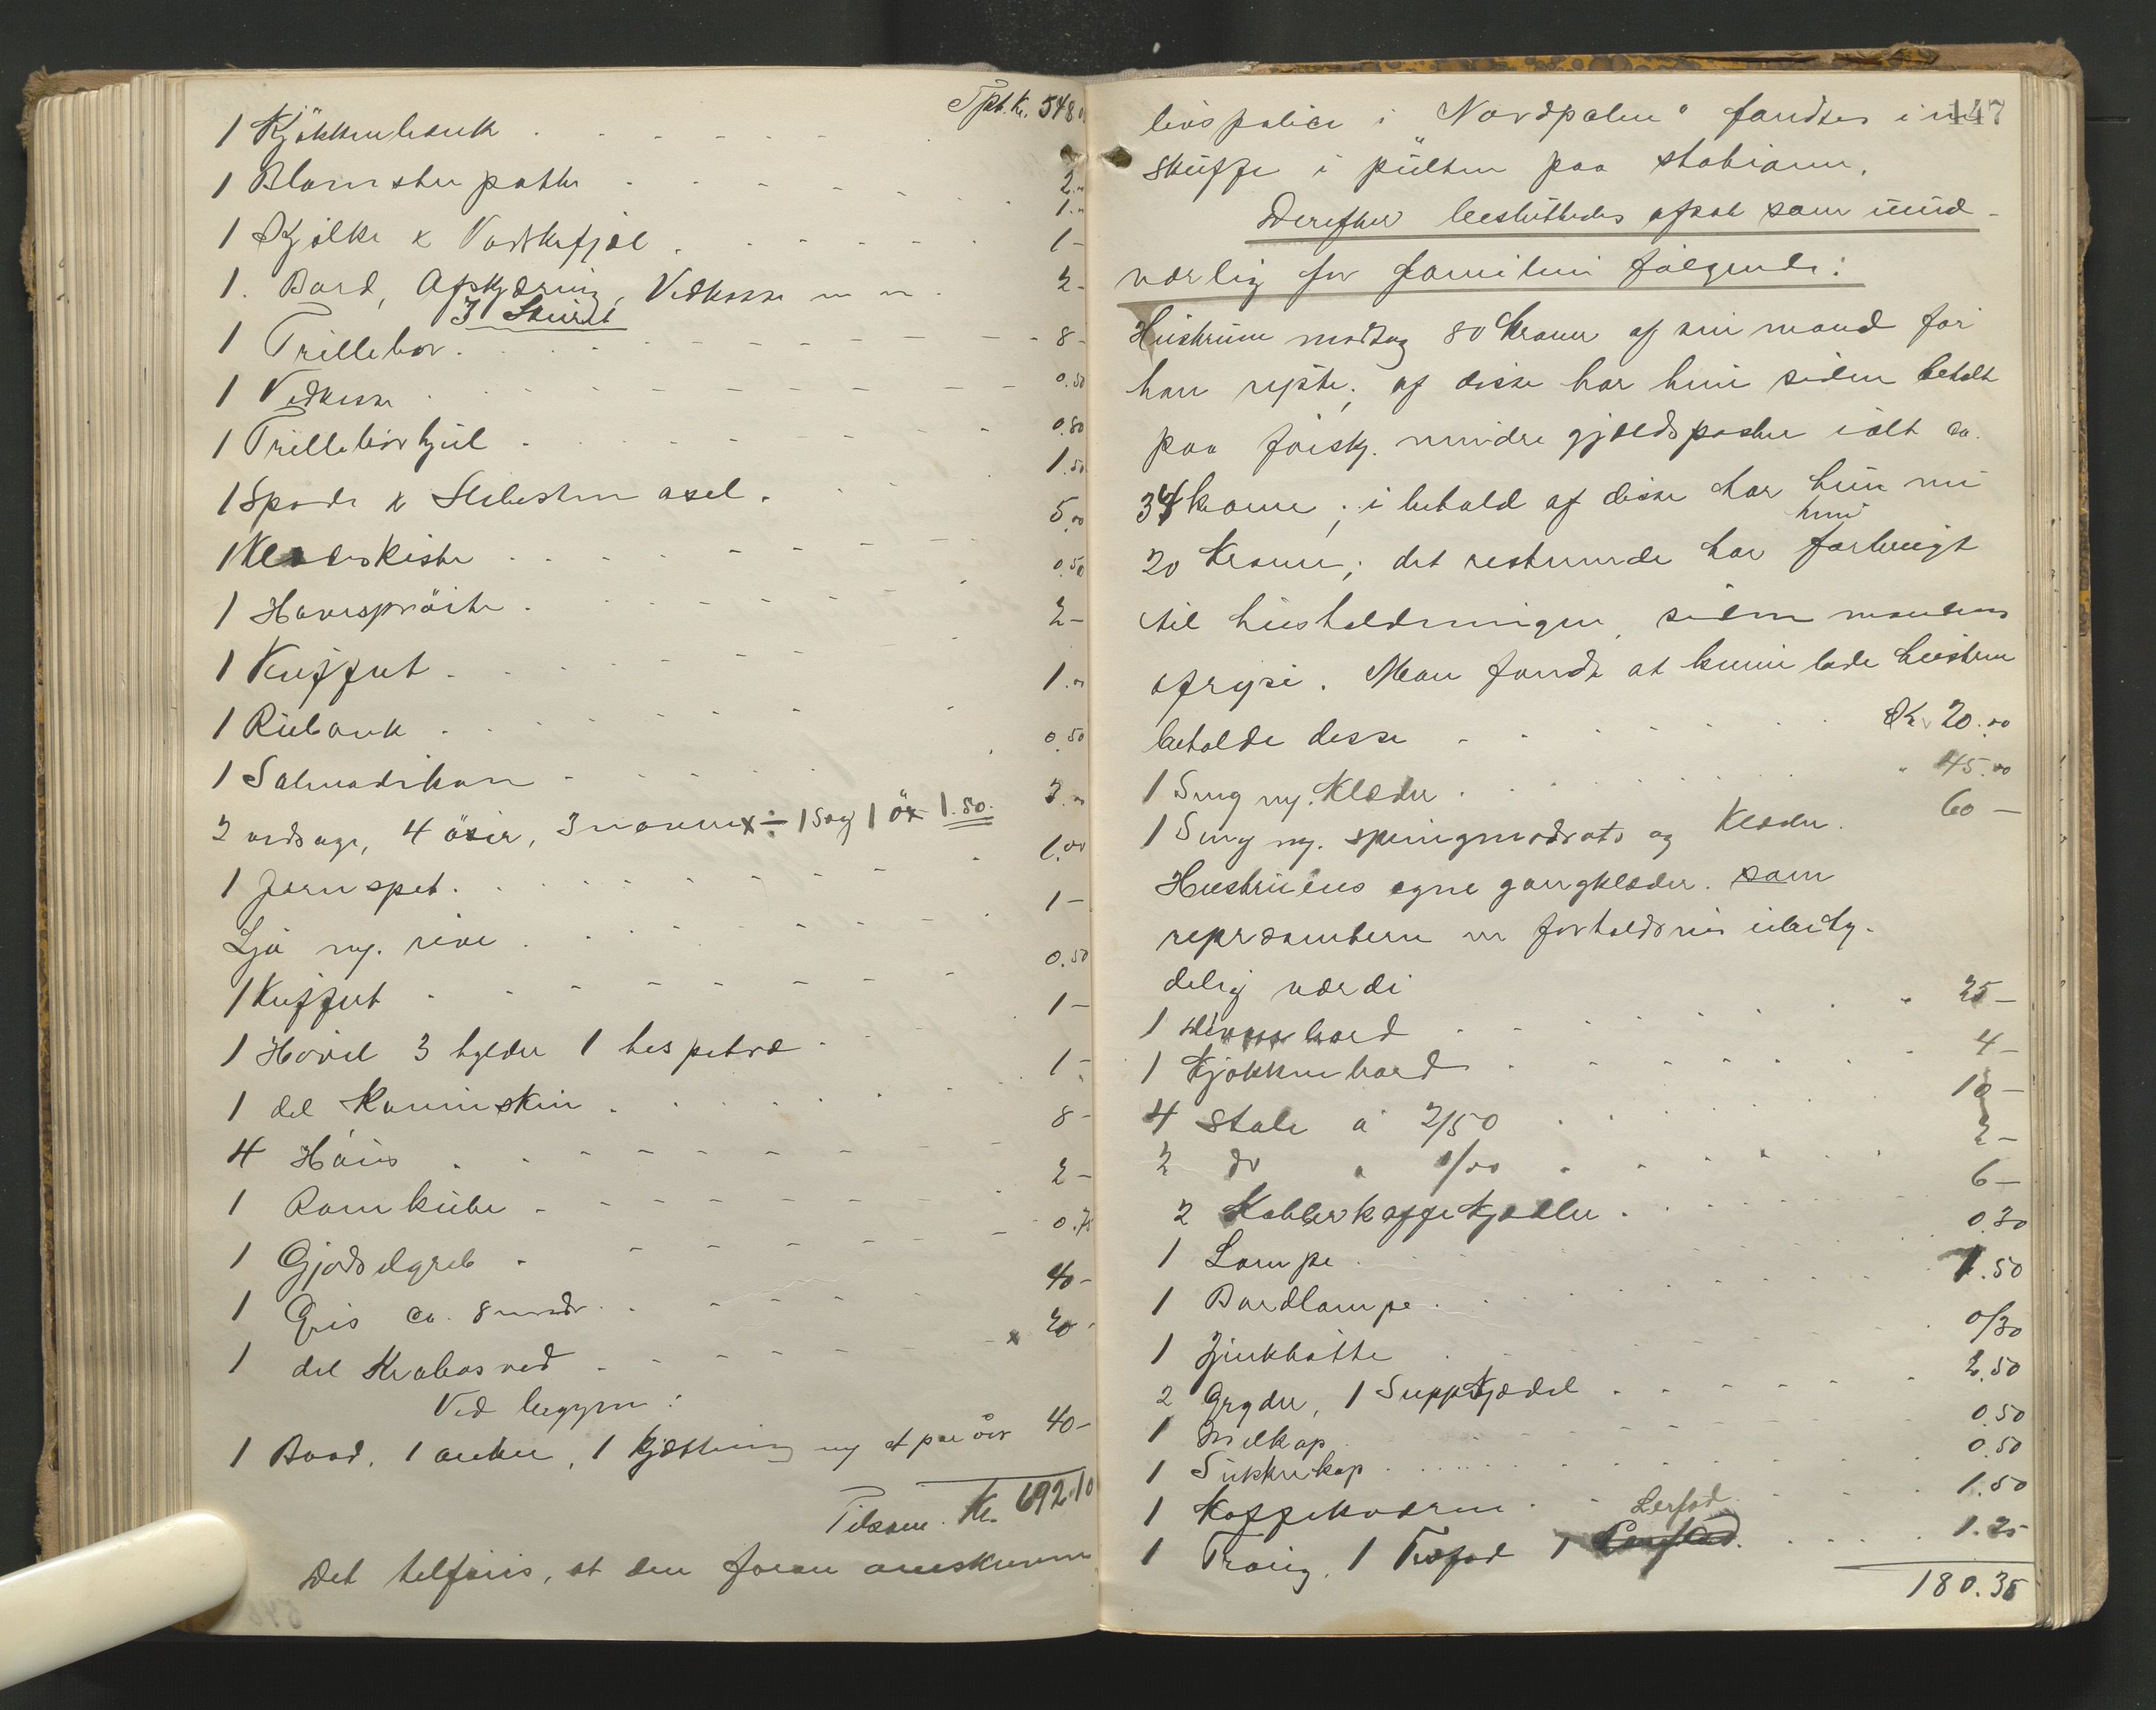 Tpt. Kr. 548
1 Kjökkenbænk 2.
1 Blomsterpotte 1.
1 Kjælke & Vadskefjæl 1 -
1. Bord, Afskjæring, Vedkasse m m. 2 -
3 Skuret
1 Trillebor. 8 -
1 Vedkasse 0.50
1 Trillebörhjul 0.80
1 Spade & Slibesten axel. 1.50
1 Klædeskiste 5.00
1 Havespröite 0.50
1 Kuffert 2 -
1 Rübænk 1.00
1 Salmodikon 0.50
2 vedsage, 4 öxer, 3 navere x ÷ 1 sag 1 öx 1.50. 3.00
1 Jernspet. 1.00
Ljå og. rive 1 -
1 Kuffert 0.50
1 Hövel 3 hylder 1 hespetræ 1 -
1 del Kaninskin 1 -
4 Höns 8 -
1 Ramkube 2 -
1 Gjödselgreb 0.75
1 Gris ca. 8 mndr. 40 -
1 del Krabasved x 20 -
Ved bryggen:
1 Baad, 1 anker, 1 Kjætting og et par örer 40 -
Tilsam. Kr. 692.10
Det tilföies, at den foran omskrevne
147
livspolice i "Nordpolen" fandtes i en
skuffe i pülten paa stabianen.
Derefter besluttedes afsat som und-
værlig for familien fölgende:
Hüstruen modtog 80 kroner af sin mand för
han reiste; af disse har hun siden betalt
paa forskj. mindre gjældsposter ialt ca.
34 kroner; i behold af disse har hun nu
20 Kroner; det resterende har hun forbrugt
til husholdningen, siden mandens
afreise. Man fandt at kunne lade hustruen
beholde disse Kr. 20.00
1 Seng og. Klæder " 45.00
1 Seng og. springmadrats og Klæder. 60 -
Hustruens egne gangklæder. som
repræsenterer en forholdsvis ubety-
delig værdi " 25 -
1 bord
1 Kjökkenbord 4 -
4 stole à 2/50 10 -
2 do à 1/00 2 -
2 Kobberkaffekjedler 6 -
1 Lampe 0.30
1 Bordlampe 1.50
1 Zinkbötte 0/30
2 Gryder, 1 Suppekjedel 2.50
1 Melkop 0.50
1 Sukkerkop 0.50
1 Kaffekværn 1.50
1 Traug, 1 Træfad 1 Lerfad 1.25
180.35